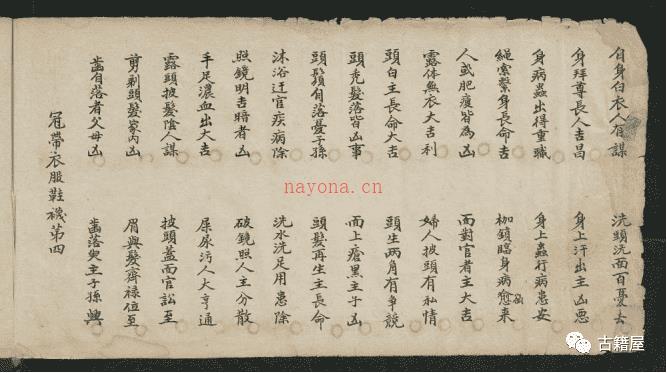 自身白衣人有謀 洗頭洗面百憂去
身拜尊長人吉昌 身上汗出主凶惡
身病蟲出得重職 身上蟲行病患安
繩索繫身長命吉 枷鎖臨身病愈欲来
人或肥瘦皆為凶 面對官者主大吉
露体無衣大吉利 婦人披頭有私情
頭白主長命大吉 頭生兩角有争競
頭禿髮落皆凶事 面上瘡黑主子凶
頭鬚自落憂子孫 頭髮再生主長命
沐浴迁官疾病除 洗水洗足用患除
照鏡明吉暗者凶 破鏡照人主分散
手足濃血出大吉 屎尿污人大亨通
露頭披髮陰人謀 披頭蓋面官訟至
剪剃頭髮家內凶 眉與髮齊祿位至
齒自落者父母凶 齒落臾主子孫興
冠帶衣服鞋襪第四
nayona.cn
古籍屋